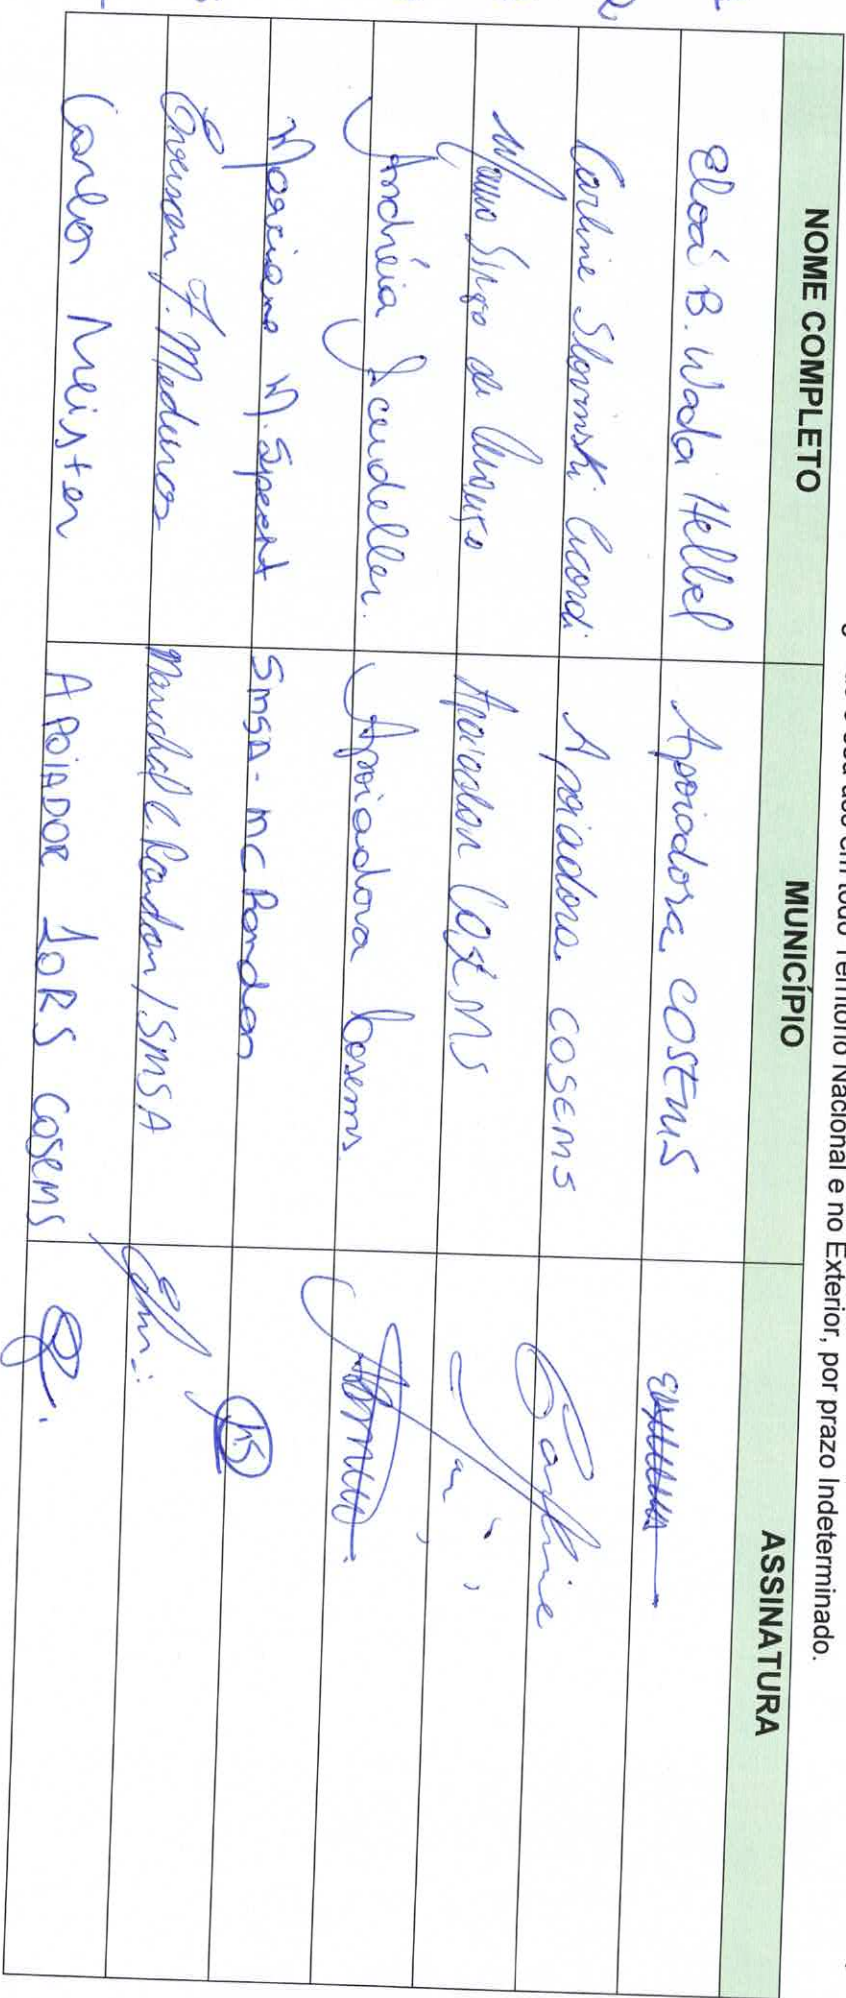 em todo Território Nacional e no Exterior, por prazo Indeterminado.
NOME COMPLETO MUNICÍPIO ASSINATURA
Eloá B. Wada Helbel Apoiadora COSEMS
Carline Slovinski Acordi Apoiadora COSEMS Carline
Apoiador COSEMS
Andréia Scudeller. Apoiadora Cosems
Marciane M. Specht SMSA - MC Rondon MS
Everson F. Medeiros Marechal C. Rondon / SMSA
Carlos Meister APOIADOR 20RS COSEMS